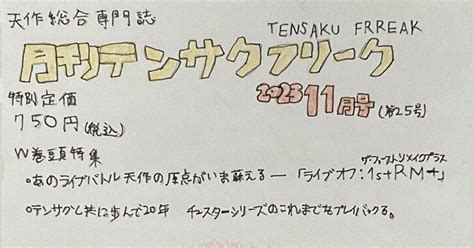 天作総合専門誌
TENSAKU FRREAK
月刊テンサクフリーク
2023 11月号 (第25号)
特別定価
750円(税込)
W巻頭特集
ザ・ファーストリメイクプラス
○あのライブバトル天作の原点がいま蘇える―「ライブオフ:1st RM+」
○テンサクと共に歩んで20年 チェスターシリーズのこれまでをプレイバックする。